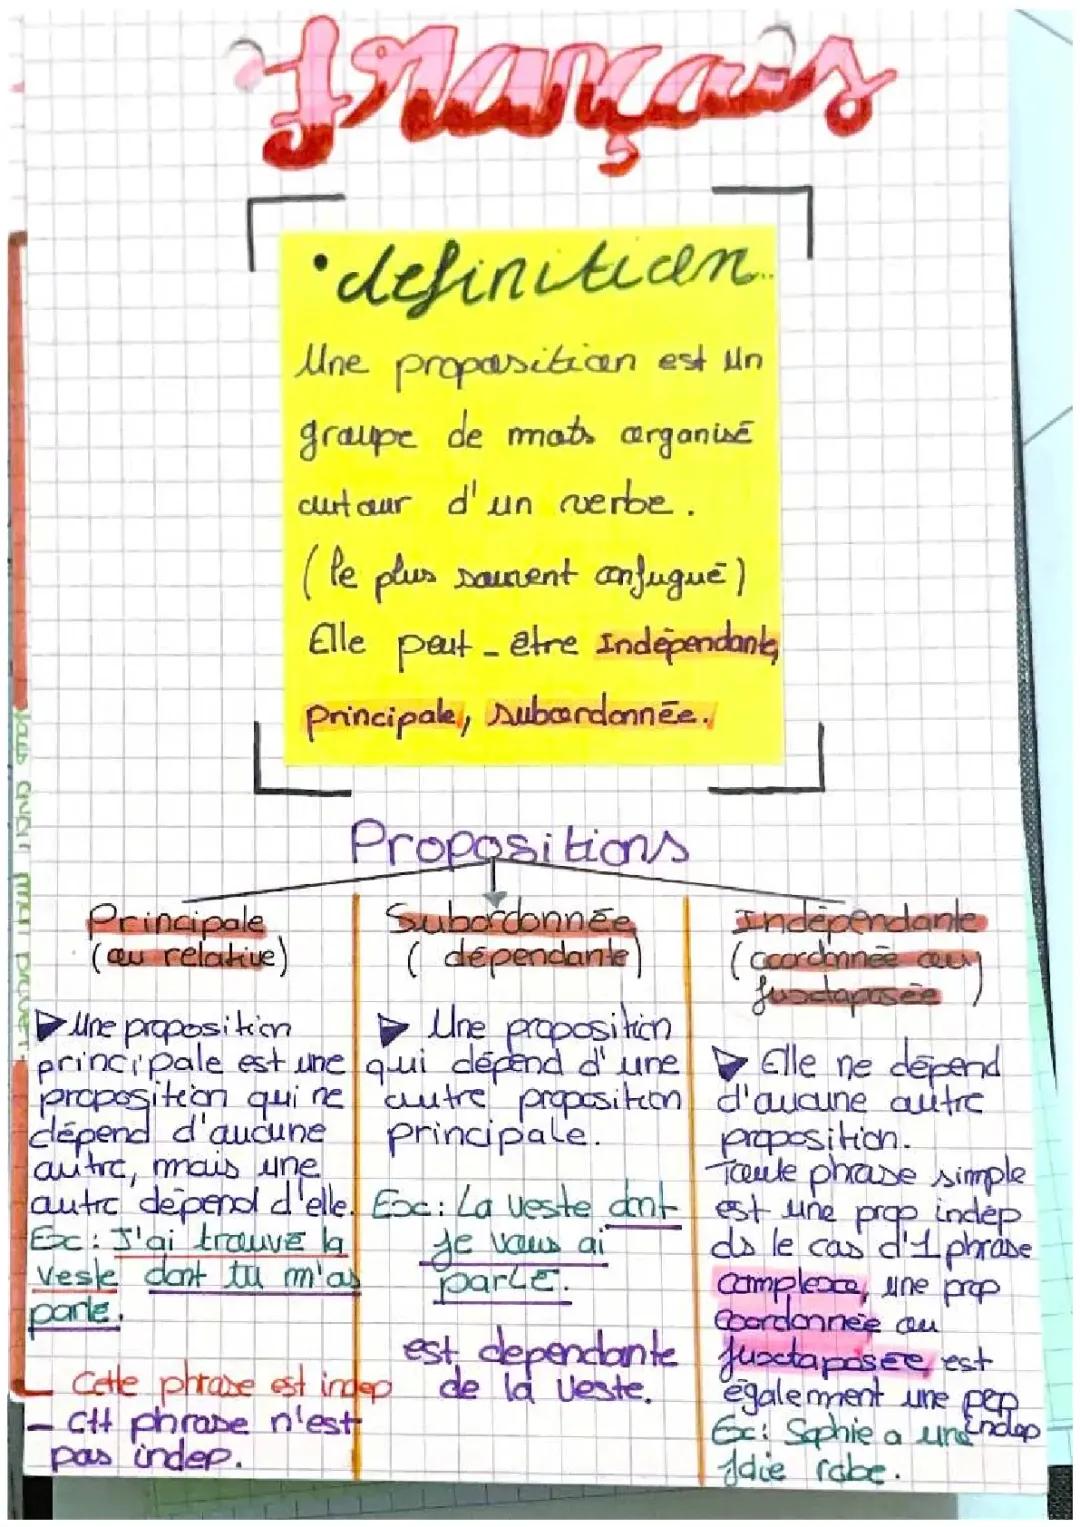 français
• définition
Une proposition est un
groupe de mots organisé
autour d'un verbe.
(le plus souvent conjugué)
Elle peut-être Indépendante,
principale, subordonnée.
Propositions
Principale
(ou relative)
▶ Une proposition
principale est une
proposition qui ne
dépend d'aucune
autre, mais une
autre dépend d'elle.
Ex: J'ai trouvé la
veste dont tu m'as
parlé.
Cette phrase est indep
- Ctt phrase n'est
pas indep.
Subordonnée
(dépendante)
▶ Une proposition
qui dépend d'une
autre proposition
principale.
Ex: La veste dont
je vous ai
parlé.
est dependante
de la veste.
Indépendante
(coordonnée ou
juxtaposée)
▶ Elle ne dépend
d'aucune autre
proposition.
Toute phrase simple
est une prop indép
ds le cas d'1 phrase
complexe, une prop
coordonnée ou
juxtaposée, est
également une pep
Indep
Ex: Sophie a une
Jolie robe.